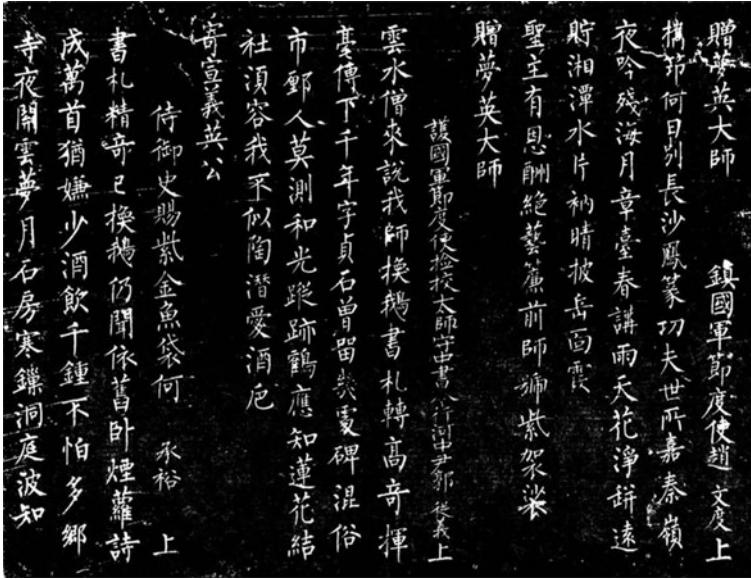 贈夢英大師 鎮國軍節度使趙 文度 上
攜筇何日別長沙鳳篆功夫世所嘉秦嶺
夜吟殘海月章臺春講雨天花淨缾遠
貯湘潭水片衲晴披岳面霞
聖主有恩酬絕藝簾前師號紫袈裟
贈夢英大師
護國軍節度使撿挍太師守中書令行河中尹郭 從義 上
雲水僧來說我師換鵝書札轉高奇揮
毫傳下千年字貞石曾留幾處碑混俗
市鄽人莫測和光蹤跡鶴應知蓮花結
社須容我不似陶潛愛酒卮
寄宣義英公
侍御史賜紫金魚袋何 承裕 上
書札精奇已換鵝仍聞依舊卧煙蘿詩
成萬首猶嫌少酒飲千鍾不怕多鄉
寺夜開雲夢月石房寒鏁洞庭波知